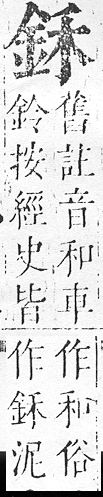 鉌
舊註音和車
鈴按經史皆
作和俗
作鉌泥